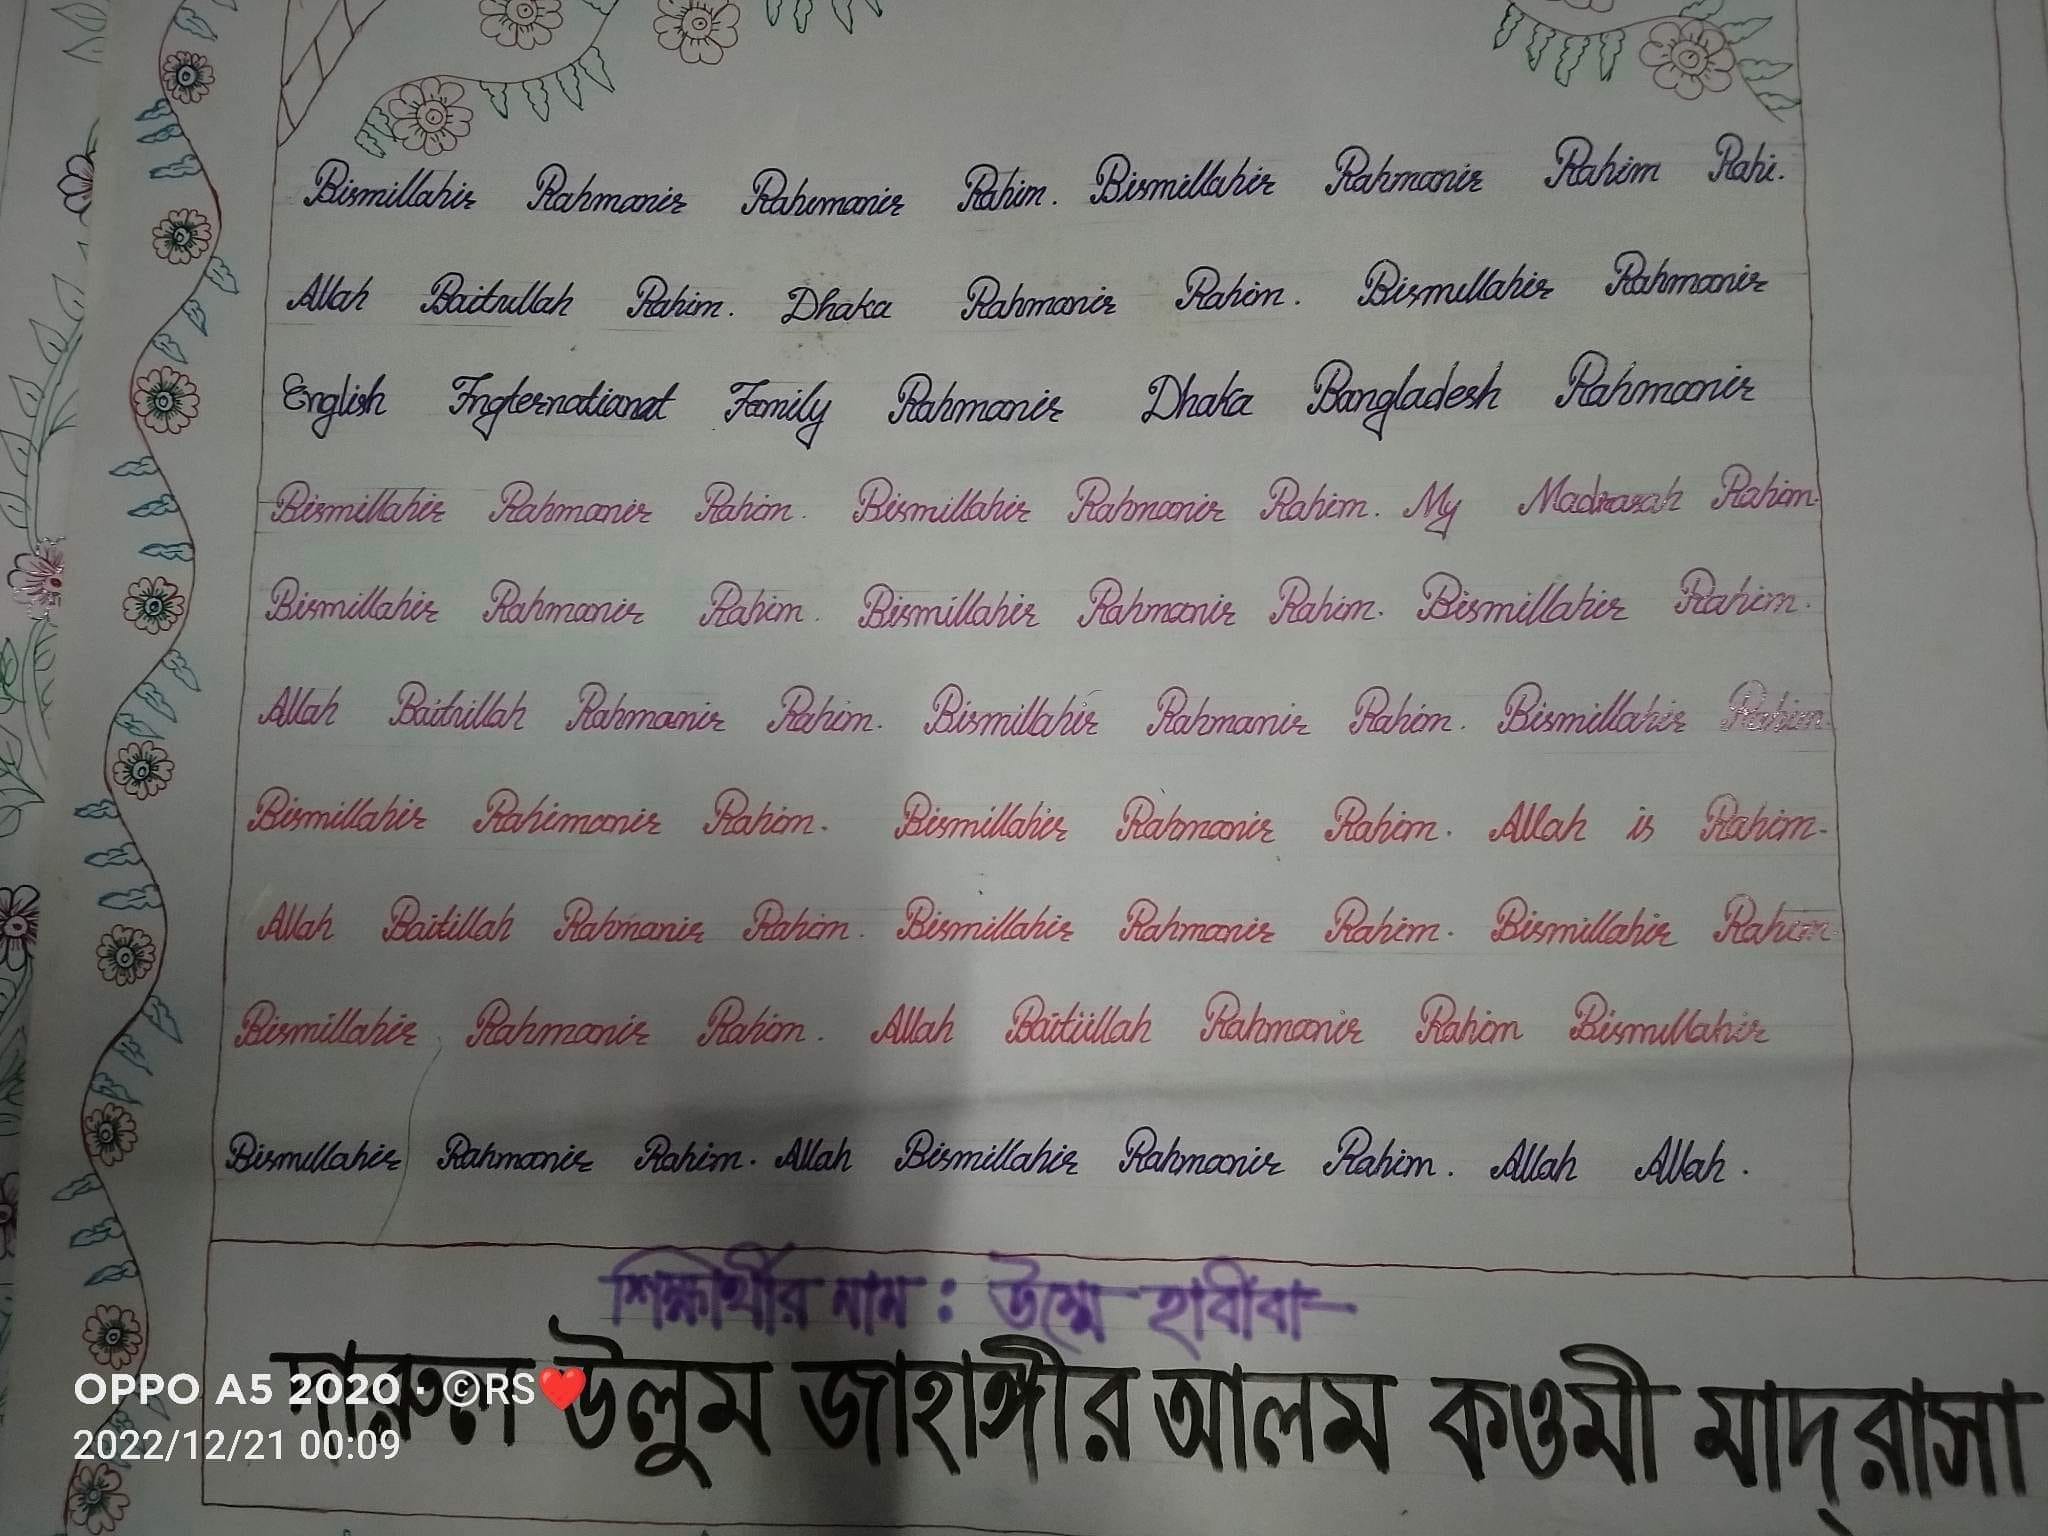 Bismillahir Rahmanir Rahimanir Rahim. Bismillahir Rahmanir Rahim Rahi.
Allah Baitullah Rahim. Dhaka Rahmanir Rahim. Bismillahir Rahmanir
English Fngternational Family Rahmanir Dhaka Bangladesh Rahmanir
Bismillahir Rahmanir Rahim. Bismillahir Rahmanir Rahim. My Madrasah Rahim.
Bismillahir Rahmanir Rahim. Bismillahir Rahmanir Rahim. Bismillahir Rahim.
Allah Baitullah Rahmanir Rahim. Bismillahir Rahmanir Rahim. Bismillahir Rahim.
Bismillahir Rahimanir Rahim. Bismillahir Rahmanir Rahim. Allah is Rahim.
Allah Baitillah Rahmanir Rahim. Bismillahir Rahmanir Rahim. Bismillahir Rahim.
Bismillahir Rahmanir Rahim. Allah Baitiillah Rahmanir Rahim Bismillahir
Bismillahir Rahmanir Rahim. Allah Bismillahir Rahmanir Rahim. Allah Allah.
শিক্ষার্থীর নাম : উম্মে হাবীবা
দারুল উলুম জাহাঙ্গীর আলম কওমী মাদ্‌রাসা
OPPO A5 2020 · ©RS❤️
2022/12/21 00:09